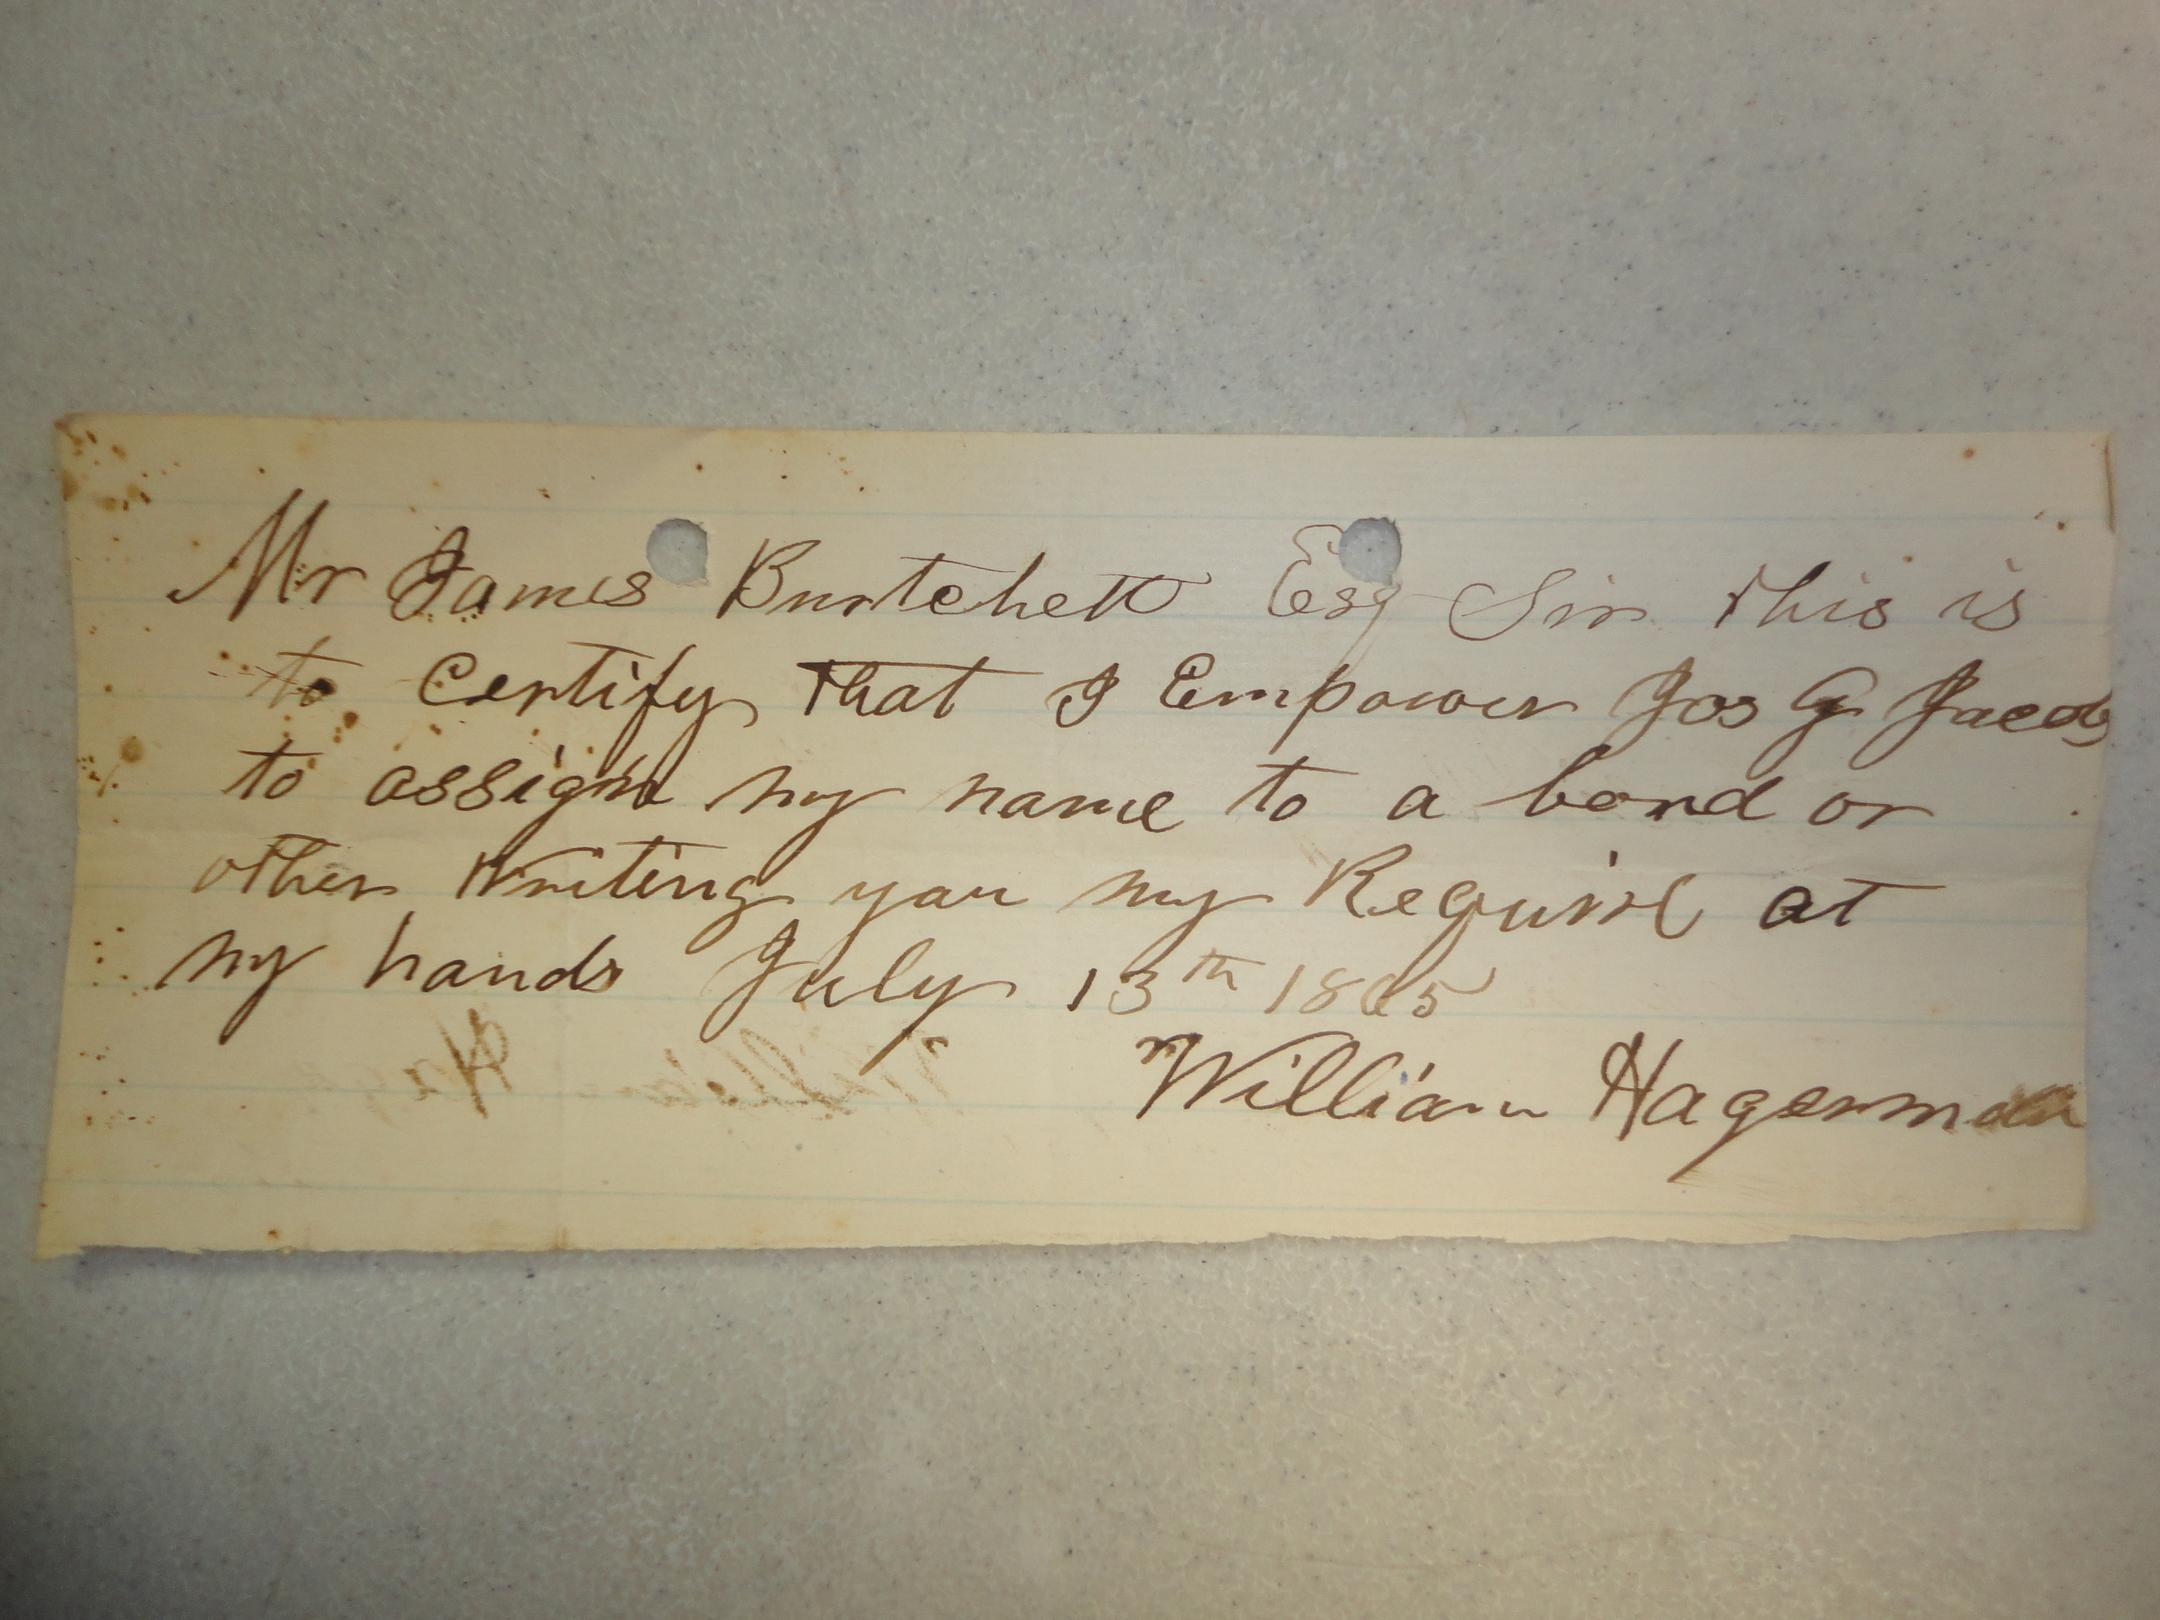 Mr James Burtchett Esq Sir this is
to Certify that I Empower Jos G Jacobs
to assign my name to a bond or
other Writing you my Require at
my hands July 13th 1865
William Hagerman